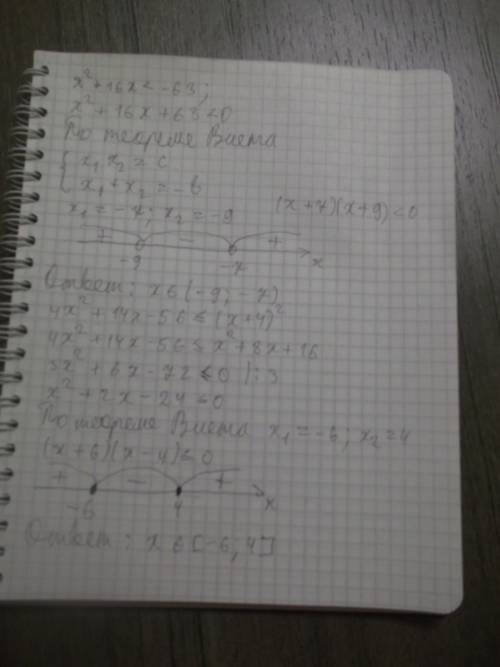 x² + 16x < -63;
x² + 16x + 63 < 0
По теореме Виета
{ x₁ x₂ = c
{ x₁ + x₂ = -b
x₁ = -7; x₂ = -9 (x+7)(x+9) < 0
+ - +
-9 -7 x
Ответ: x ∈ (-9; -7)
4x² + 14x - 56 ≤ (x+4)²
4x² + 14x - 56 ≤ x² + 8x + 16
3x² + 6x - 72 ≤ 0 |:3
x² + 2x - 24 ≤ 0
По теореме Виета x₁ = -6; x₂ = 4
(x+6)(x-4) ≤ 0
+ - +
-6 4 x
Ответ: x ∈ [-6; 4]